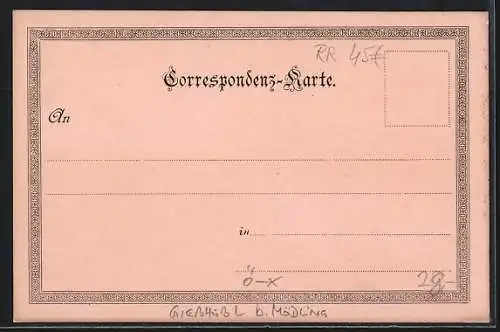 RR 45€
Correspondenz-Karte.
An
in
Ö-X
28,-
GIEßHÜBL b. MÖDLING